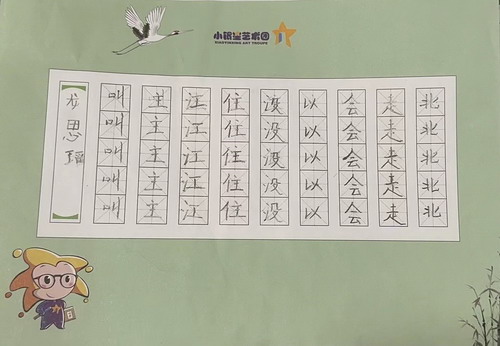 小银星艺术团
XIAOYINXING ART TROUPE
北北北北北
走走走走走
会会会会会
以以以以以
没没没没没
住住住住住
江江江江江
主主主主主
叫叫叫叫叫
龙思瑶